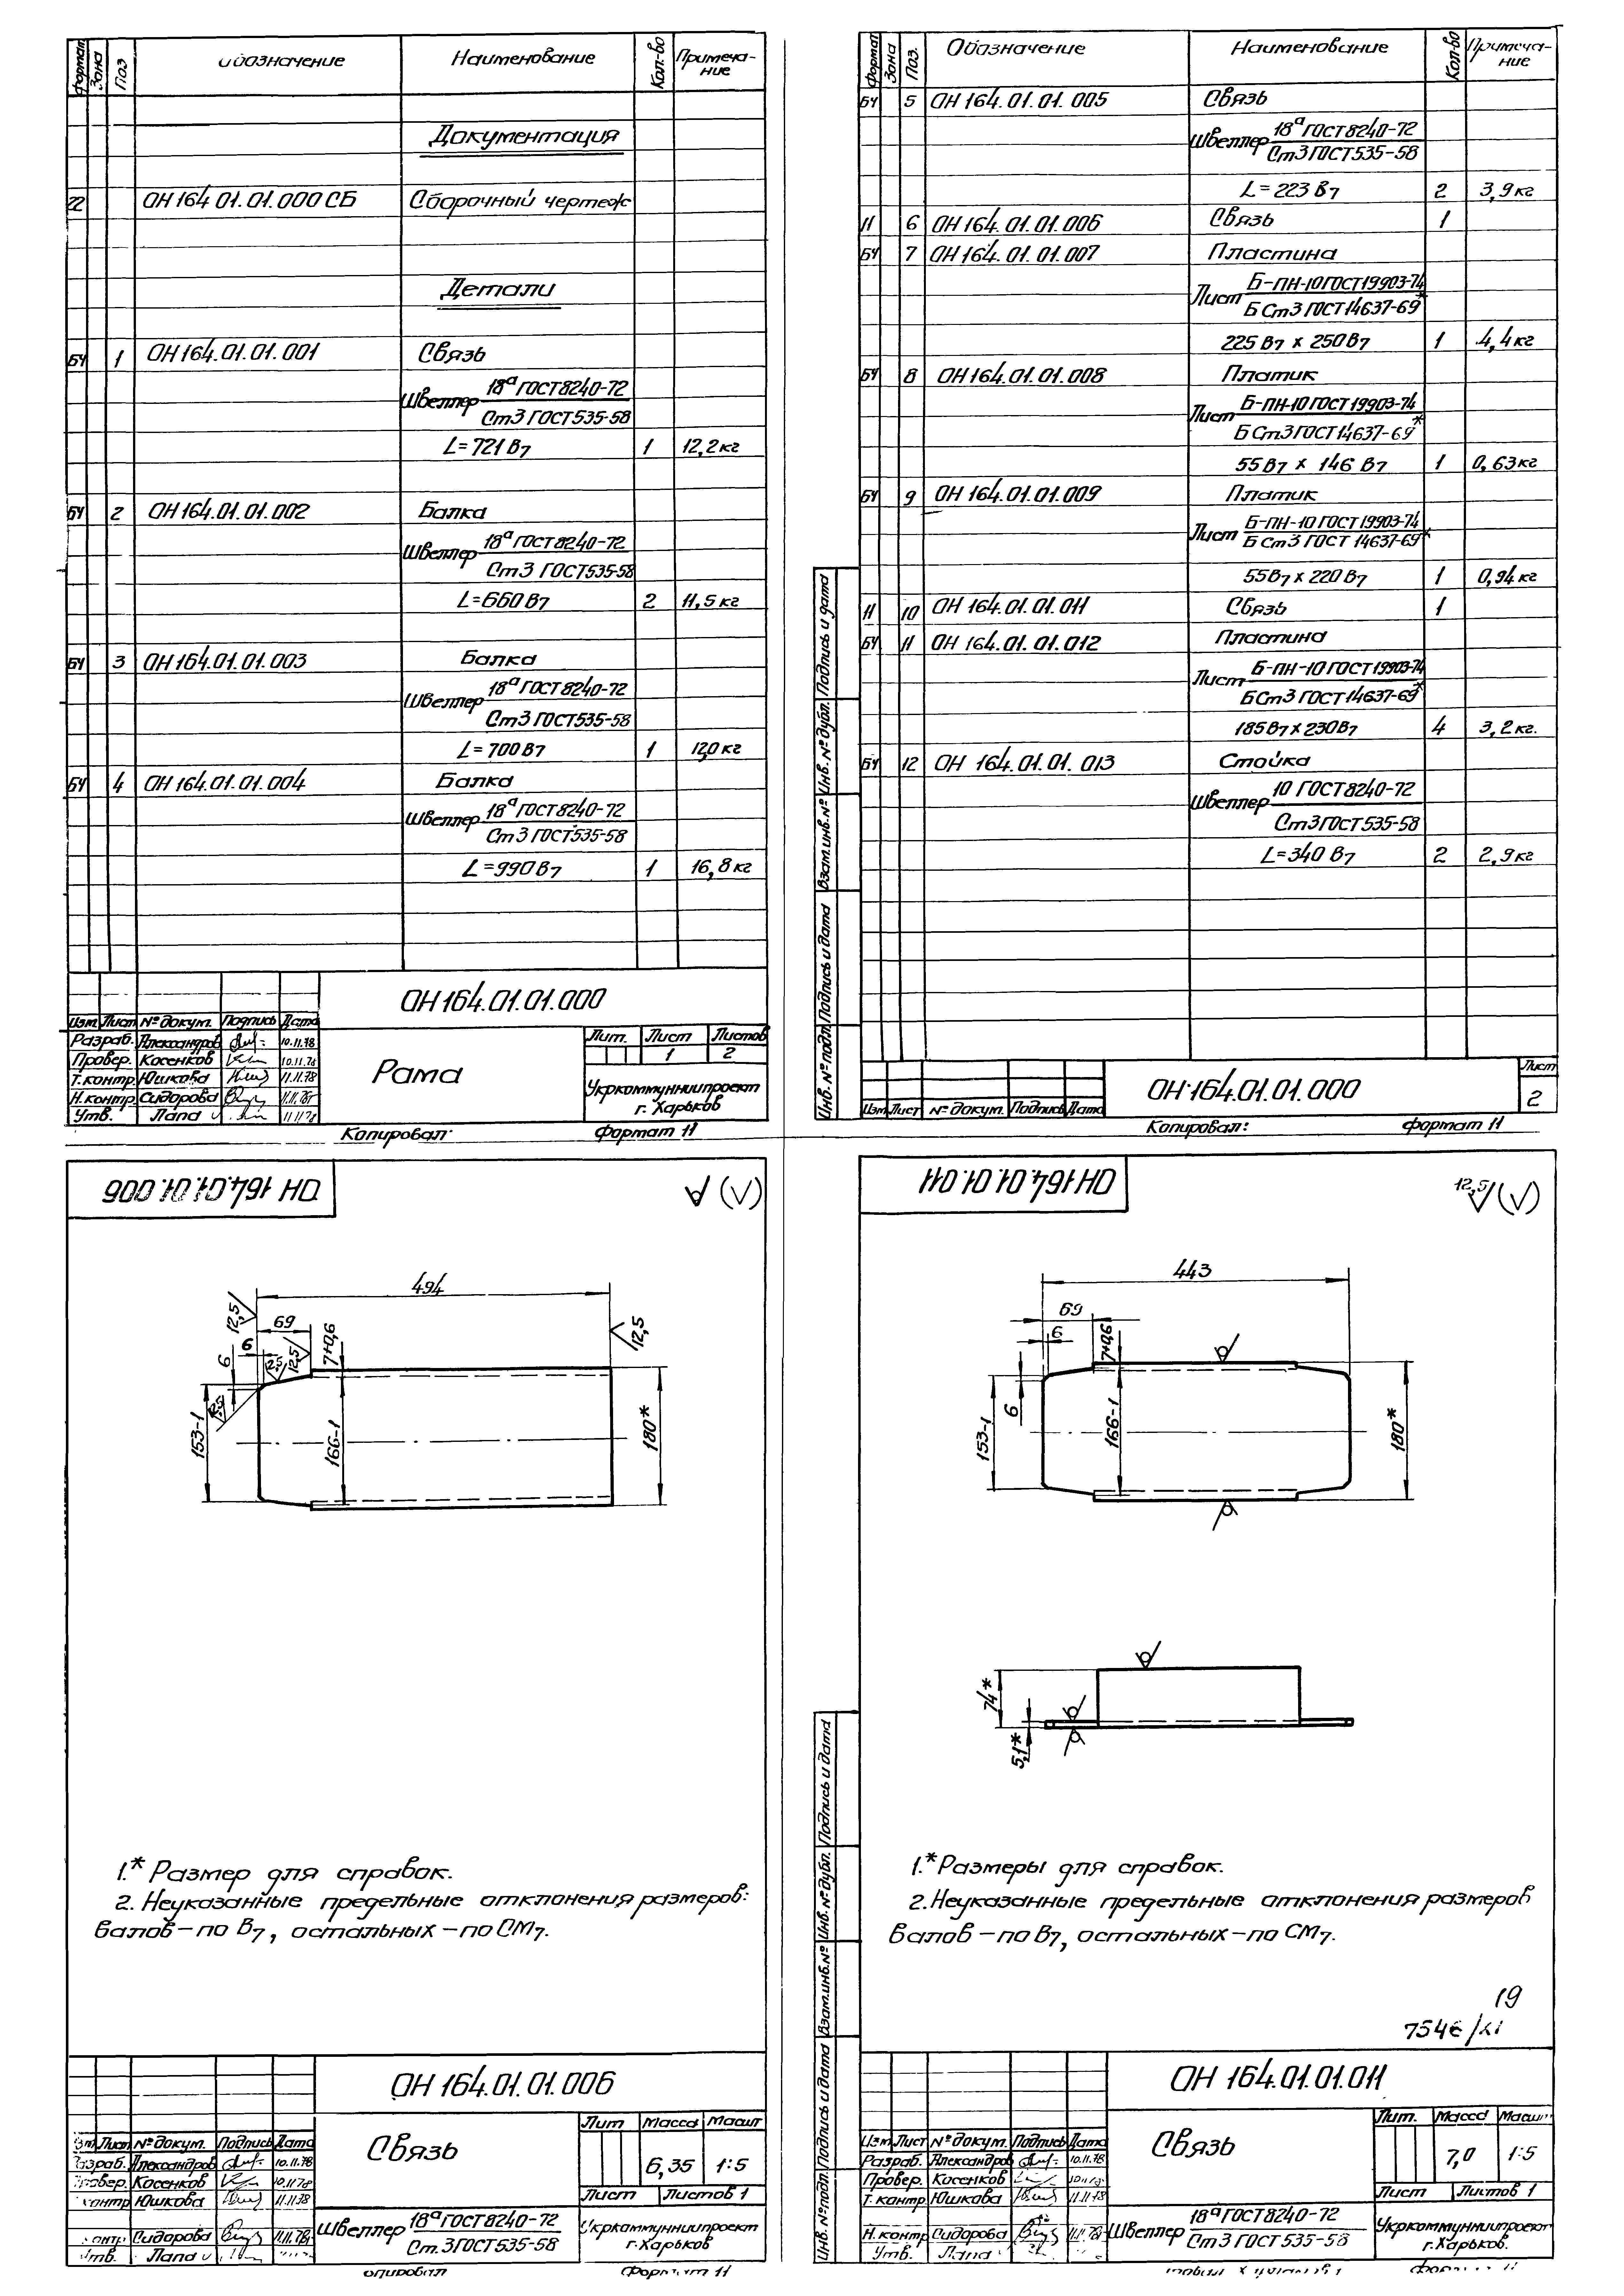 Формат Зона Поз Обозначение Наименование Кол-во Примеча-
ние
Документация
22 ОН 164.01.01.000 СБ Сборочный чертеж
Детали
БЧ 1 ОН 164.01.01.001 Связь
Швеллер 18а ГОСТ 8240-72
Ст3 ГОСТ 535-58
L=721 В7 1 12,2 кг
БЧ 2 ОН 164.01.01.002 Балка
Швеллер 18а ГОСТ 8240-72
Ст3 ГОСТ 535-58
L=660 В7 2 11,5 кг
БЧ 3 ОН 164.01.01.003 Балка
Швеллер 18а ГОСТ 8240-72
Ст3 ГОСТ 535-58
L=700 В7 1 12,0 кг
БЧ 4 ОН 164.01.01.004 Балка
Швеллер 18а ГОСТ 8240-72
Ст3 ГОСТ 535-58
L=990 В7 1 16,8 кг
ОН 164.01.01.000
Изм Лист № докум. Подпись Дата
Разраб. Александров 10.11.78
Провер. Косенков 10.11.78
Т.контр. Юшкова 11.11.78
Н.контр. Сидорова 11.11.78
Утв. Лапа 11.11.78
Рама
Лит. Лист Листов
1 2
Укркоммунниипроект
г. Харьков
Копировал: Формат 11
Формат Зона Поз. Обозначение Наименование Кол-во Примеча-
ние
БЧ 5 ОН 164.01.01.005 Связь
Швеллер 18а ГОСТ 8240-72
Ст3 ГОСТ 535-58
L=223 В7 2 3,9 кг
11 6 ОН 164.01.01.006 Связь 1
БЧ 7 ОН 164.01.01.007 Пластина
Лист Б-ПН-10 ГОСТ 19903-74
Б Ст3 ГОСТ 14637-69*
225 В7 х 250 В7 1 4,4 кг
БЧ 8 ОН 164.01.01.008 Платик
Лист Б-ПН-10 ГОСТ 19903-74
Б Ст3 ГОСТ 14637-69*
55 В7 х 146 В7 1 0,63 кг
БЧ 9 ОН 164.01.01.009 Платик
Лист Б-ПН-10 ГОСТ 19903-74
Б Ст3 ГОСТ 14637-69*
55 В7 х 220 В7 1 0,94 кг
11 10 ОН 164.01.01.011 Связь 1
БЧ 11 ОН 164.01.01.012 Пластина
Лист Б-ПН-10 ГОСТ 19903-74
Б Ст3 ГОСТ 14637-69*
185 В7 х 230 В7 4 3,2 кг.
БЧ 12 ОН 164.01.01.013 Стойка
Швеллер 10 ГОСТ 8240-72
Ст3 ГОСТ 535-58
L=340 В7 2 2,9 кг
Инв. № подл. Подпись и дата Взам. инв. № Инв. № дубл. Подпись и дата
Изм Лист № докум. Подпись Дата
ОН 164.01.01.000
Лист
2
Копировал: Формат 11
ОН 164.01.01.006
494
12,5
69
7+0,6
12,5
6
6
12,5
12,5
12,5
153-1
166-1
180*
1.* Размер для справок.
2. Неуказанные предельные отклонения размеров:
валов – по В7, остальных – по СМ7.
ОН 164.01.01.006
Изм Лист № докум. Подпись Дата
Разраб. Александров 10.11.78
Провер. Косенков 10.11.78
контр. Юшкова 11.11.78
контр. Сидорова 11.11.78
Утв. Лапа
Связь
Лит Масса Масшт
6,35 1:5
Лист Листов 1
Швеллер 18а ГОСТ 8240-72
Ст.3 ГОСТ 535-58
Укркоммунниипроект
г. Харьков
опировал Формат 11
ОН 164.01.01.011
12,5
443
69
6
7+0,6
6
153-1
166-1
180*
74*
5,1*
1.* Размеры для справок.
2. Неуказанные предельные отклонения размеров
валов – по В7, остальных – по СМ7.
19
Инв. № подл. Подпись и дата Взам. инв. № Инв. № дубл. Подпись и дата
ОН 164.01.01.011
Изм Лист № докум. Подпись Дата
Разраб. Александров 10.11.78
Провер. Косенков 10.11.78
Т. контр. Юшкова 11.11.78
Н. контр. Сидорова 11.11.78
Утв. Лапа
Связь
Лит. Масса Масш
7,0 1:5
Лист Листов 1
Швеллер 18а ГОСТ 8240-72
Ст3 ГОСТ 535-58
Укркоммунниипроект
г. Харьков.